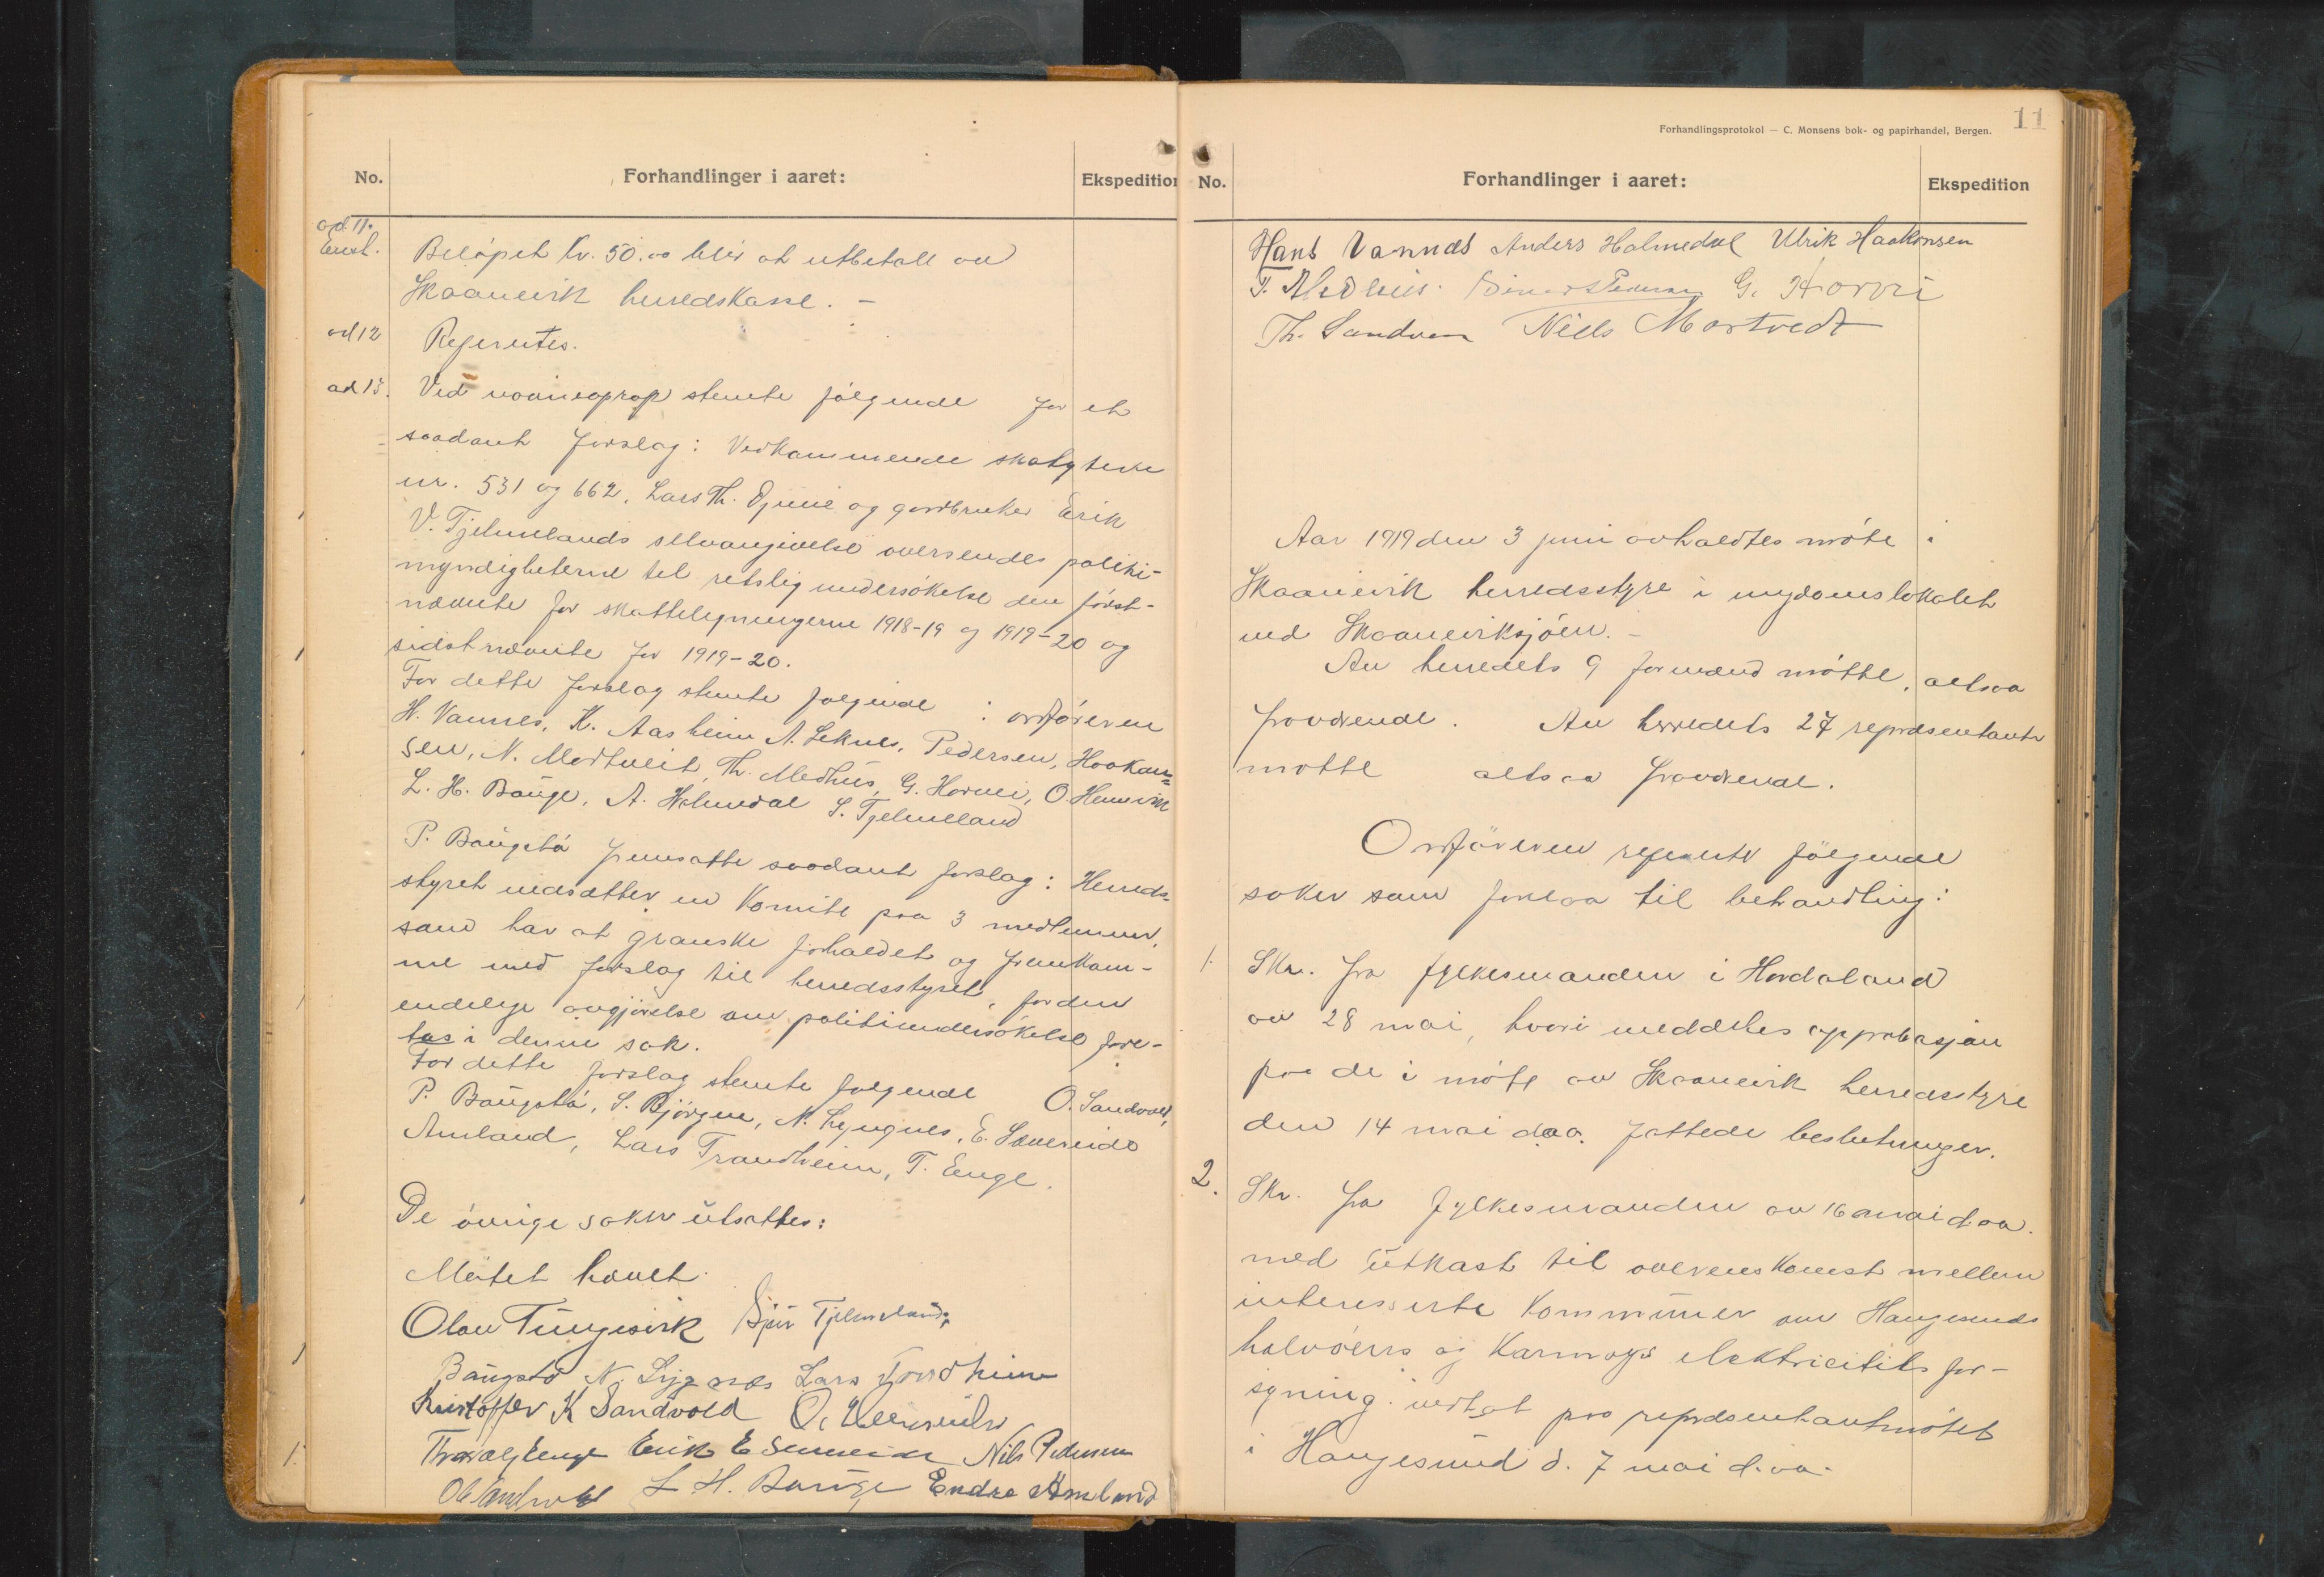 No.
Forhandlinger i aaret:
Ekspedition
ad 11.
Enst.
Beløpet kr. 50.00 blir at utbetale av
Skaanevik herredskasse. –
ad 12
Refertes.
ad 13.
Ved navneoprop stemte følgende for et
saadant forslag: Vedkommende skatytere
nr. 531 og 662, Lars Th. og gardbruker Erik
V. Tjelmelands selvangivelse oversendes politi-
myndigheterne til retslig undersøkelse den først-
nævnte for skatteligningerne 1918-19 og 1919-20 og
sidstnævnte for 1919-20.
For dette forslag stemte følgende : ordføreren
H. Vannes, K. Aasheim A. Leknes, Pedersen, Haakon=
sen, N. Mortveit, Th. Medhus, G. Horvei, O. Hemsvik
L. H. Bauge, A. Holmedal S. Tjelmeland
P. Baugstø fremsatte saadant forslag: Herreds=
styret nedsætter en komite paa 3 medlemmer,
som har at granske forholdet og fremkom-
me med forslag til herredsstyret, før den
endelige avgjørelse om politiundersøkelse fore-
tas i denne sak.
For dette forslag stemte følgende O. Sandvold,
P. Baugstø, S. Bjørgen, N. Lyngnes, E. Sævereide
Amland, Lars Trondheim, T. Enge.
De øvrige saker utsattes:
Møtet hævet.
Olav Tungesvik Sjur Tjelmeland,
Baugstø N. Lygnes Lars Trondheim
Kristoffer K Sandvold O.
Enge Erik E Nils Pedersen
L. H. Bauge Endre Amland
Forhandlingsprotokol — C. Monsens bok- og papirhandel, Bergen.
11
No.
Forhandlinger i aaret:
Ekspedition
Hans Vannes Anders Holmedal Ulrik Haakonsen
T. Medhus. Pedersen G. Horvei
Th. Sandven Niels Mortvedt
Aar 1919 den 3 juni avholdtes møte i
Skaanevik herredsstyre i ungdomslokalet
ved Skaaneviksjøen. –
Av herredets 9 formænd møtte, altsaa
fraværende. Av herredets 27 repræsentante
møtte altsaa fraværende.
Ordføreren referete følgende
saker som forelaa til behandling:
1.
Skr. fra fylkesmanden i Hordaland
av 28 mai, hvori meddeles approbasjon
paa de i møte av Skaanevik herredsstyre
den 14 mai d.aa. fattede beslutninger.
2.
Skr. fra fylkesmanden av 16 mai d.aa.
med utkast til overenskomst mellem
interesserte kommuner om Haugesunds
halvøens og Karmøys elektricitetsfor-
syning. vedtat paa repræsentantmøtet
i Haugesund d. 7 mai d.aa.